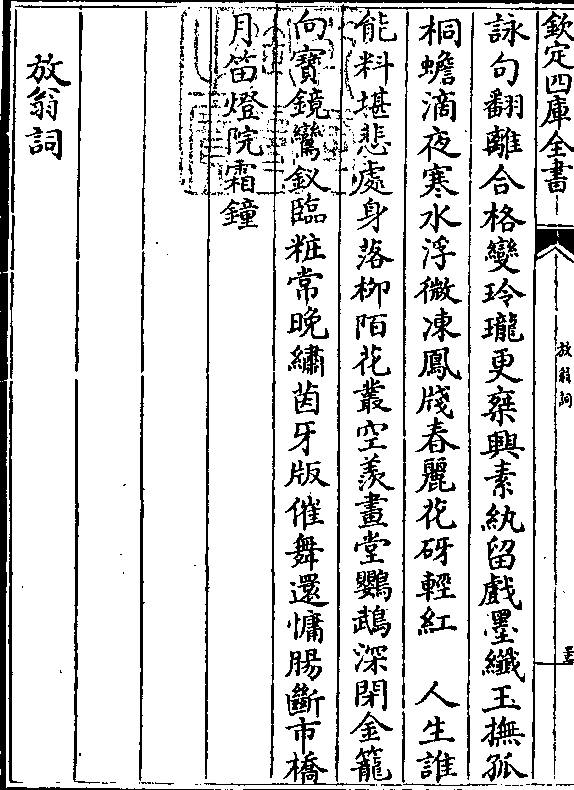 欽定四庫全書
放翁詞
詠句翻離合格變玲瓏更棄興素紈留戲墨纖玉撫孤
桐蟾滴夜寒水浮微凍鳳牋春麗花砑輕紅　人生誰
能料堪悲處身落柳陌花叢空羨畫堂鸚鵡深閉金籠
向寶鏡鸞釵臨粧常晚繡茵牙版催舞還慵腸斷市橋
月笛燈院霜鐘
放翁詞